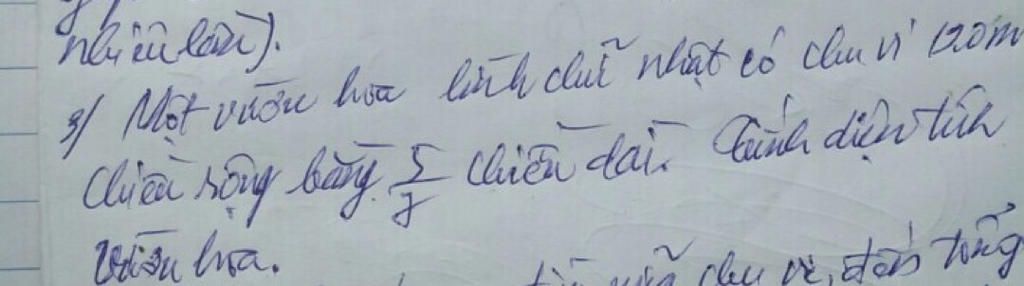 nhiêu lần).
3/ Một vườn hoa hình chữ nhật có chu vi 120m
Chiều rộng bằng 5/7 chiều dài. Tính diện tích
vườn hoa.
nửa chu vi, đến tổng